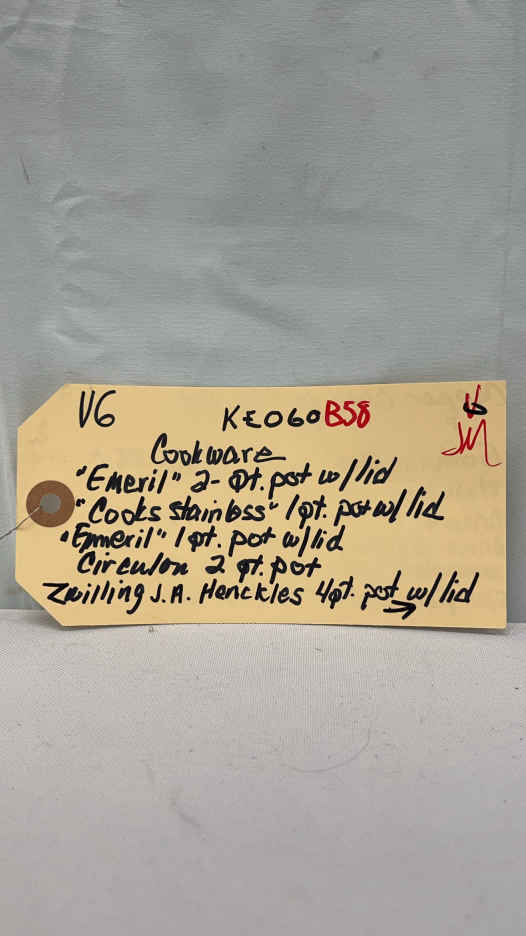 V6 KE060 B58
JM
Cookware
"Emeril" 2- qt. pot w/lid
"Cooks stainless" 1qt. pot w/lid
"Emmeril" 1qt. pot w/lid
Circulon 2 qt. pot
Zwilling J.A. Henckles 4qt. pot w/lid →